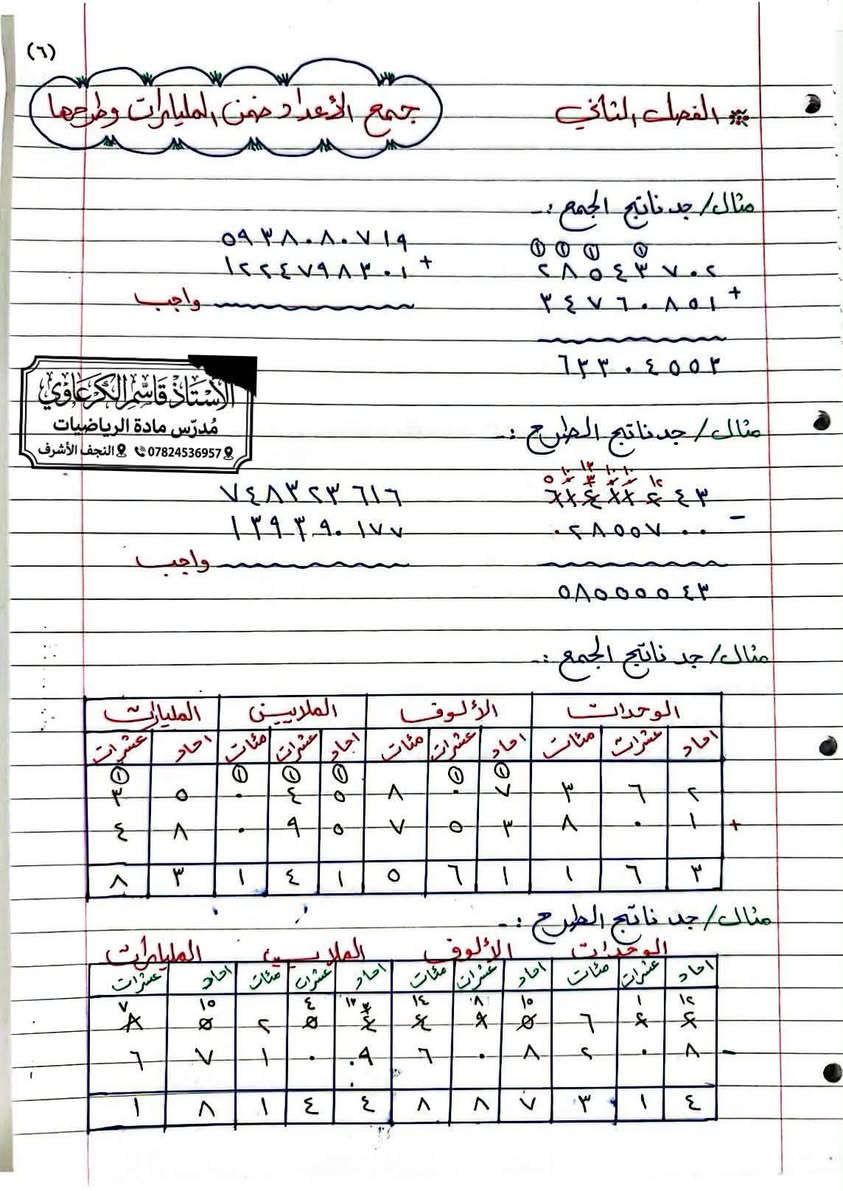 (٦)
* الفصل الثاني جمع الأعداد ضمن المليارات وطرحها
مثال/ جد ناتج الجمع :-
① ① ① ①
٢٨٥٤٣٧٠٢ +
٣٤٧٦٠٨٥١
٦٣٣٠٤٥٥٣
٥٩٣٨٠٨٠٧١٩
١٢٢٤٧٩٨٣٠١ +
واجب
الأستاذ قاسم الكرعاوي
مُدرّس مادة الرياضيات
07824536957 النجف الأشرف
مثال/ جد ناتج الطرح :-
٠٢٨٥٥٧٠٠ -
٥٨٥٥٥٥٤٣
٧٤٨٣٢٣٦١٦
١٣٩٣٩٠١٧٧
واجب
مثال/ جد ناتج الجمع :-
الوحدات الألوف الملايين المليارات
احاد عشرات مئات احاد عشرات مئات احاد عشرات مئات احاد عشرات
① ① ① ① ① ①
٢ ٦ ٣ ٧ ٠ ٨ ٥ ٤ ٠ ٥ ٣
١ ٠ ٨ ٣ ٥ ٧ ٥ ٩ ٠ ٨ ٤ +
٣ ٦ ١ ١ ٦ ٥ ١ ٤ ١ ٣ ٨
مثال/ جد ناتج الطرح :-
الوحدات الألوف الملايين المليارات
احاد عشرات مئات احاد عشرات مئات احاد عشرات مئات احاد عشرات
١٢ ١ ١٥ ٨ ١٤ ١٣ ٣ ٤ ١٥ ٧
٢ ٢ ٦ ٥ ٩ ٤ ٤ ٥ ٢ ٥ ٨
٨ ٠ ٢ ٨ ٠ ٦ ٩ ٠ ١ ٧ ٦ -
٤ ١ ٣ ٧ ٨ ٨ ٤ ٤ ١ ٨ ١